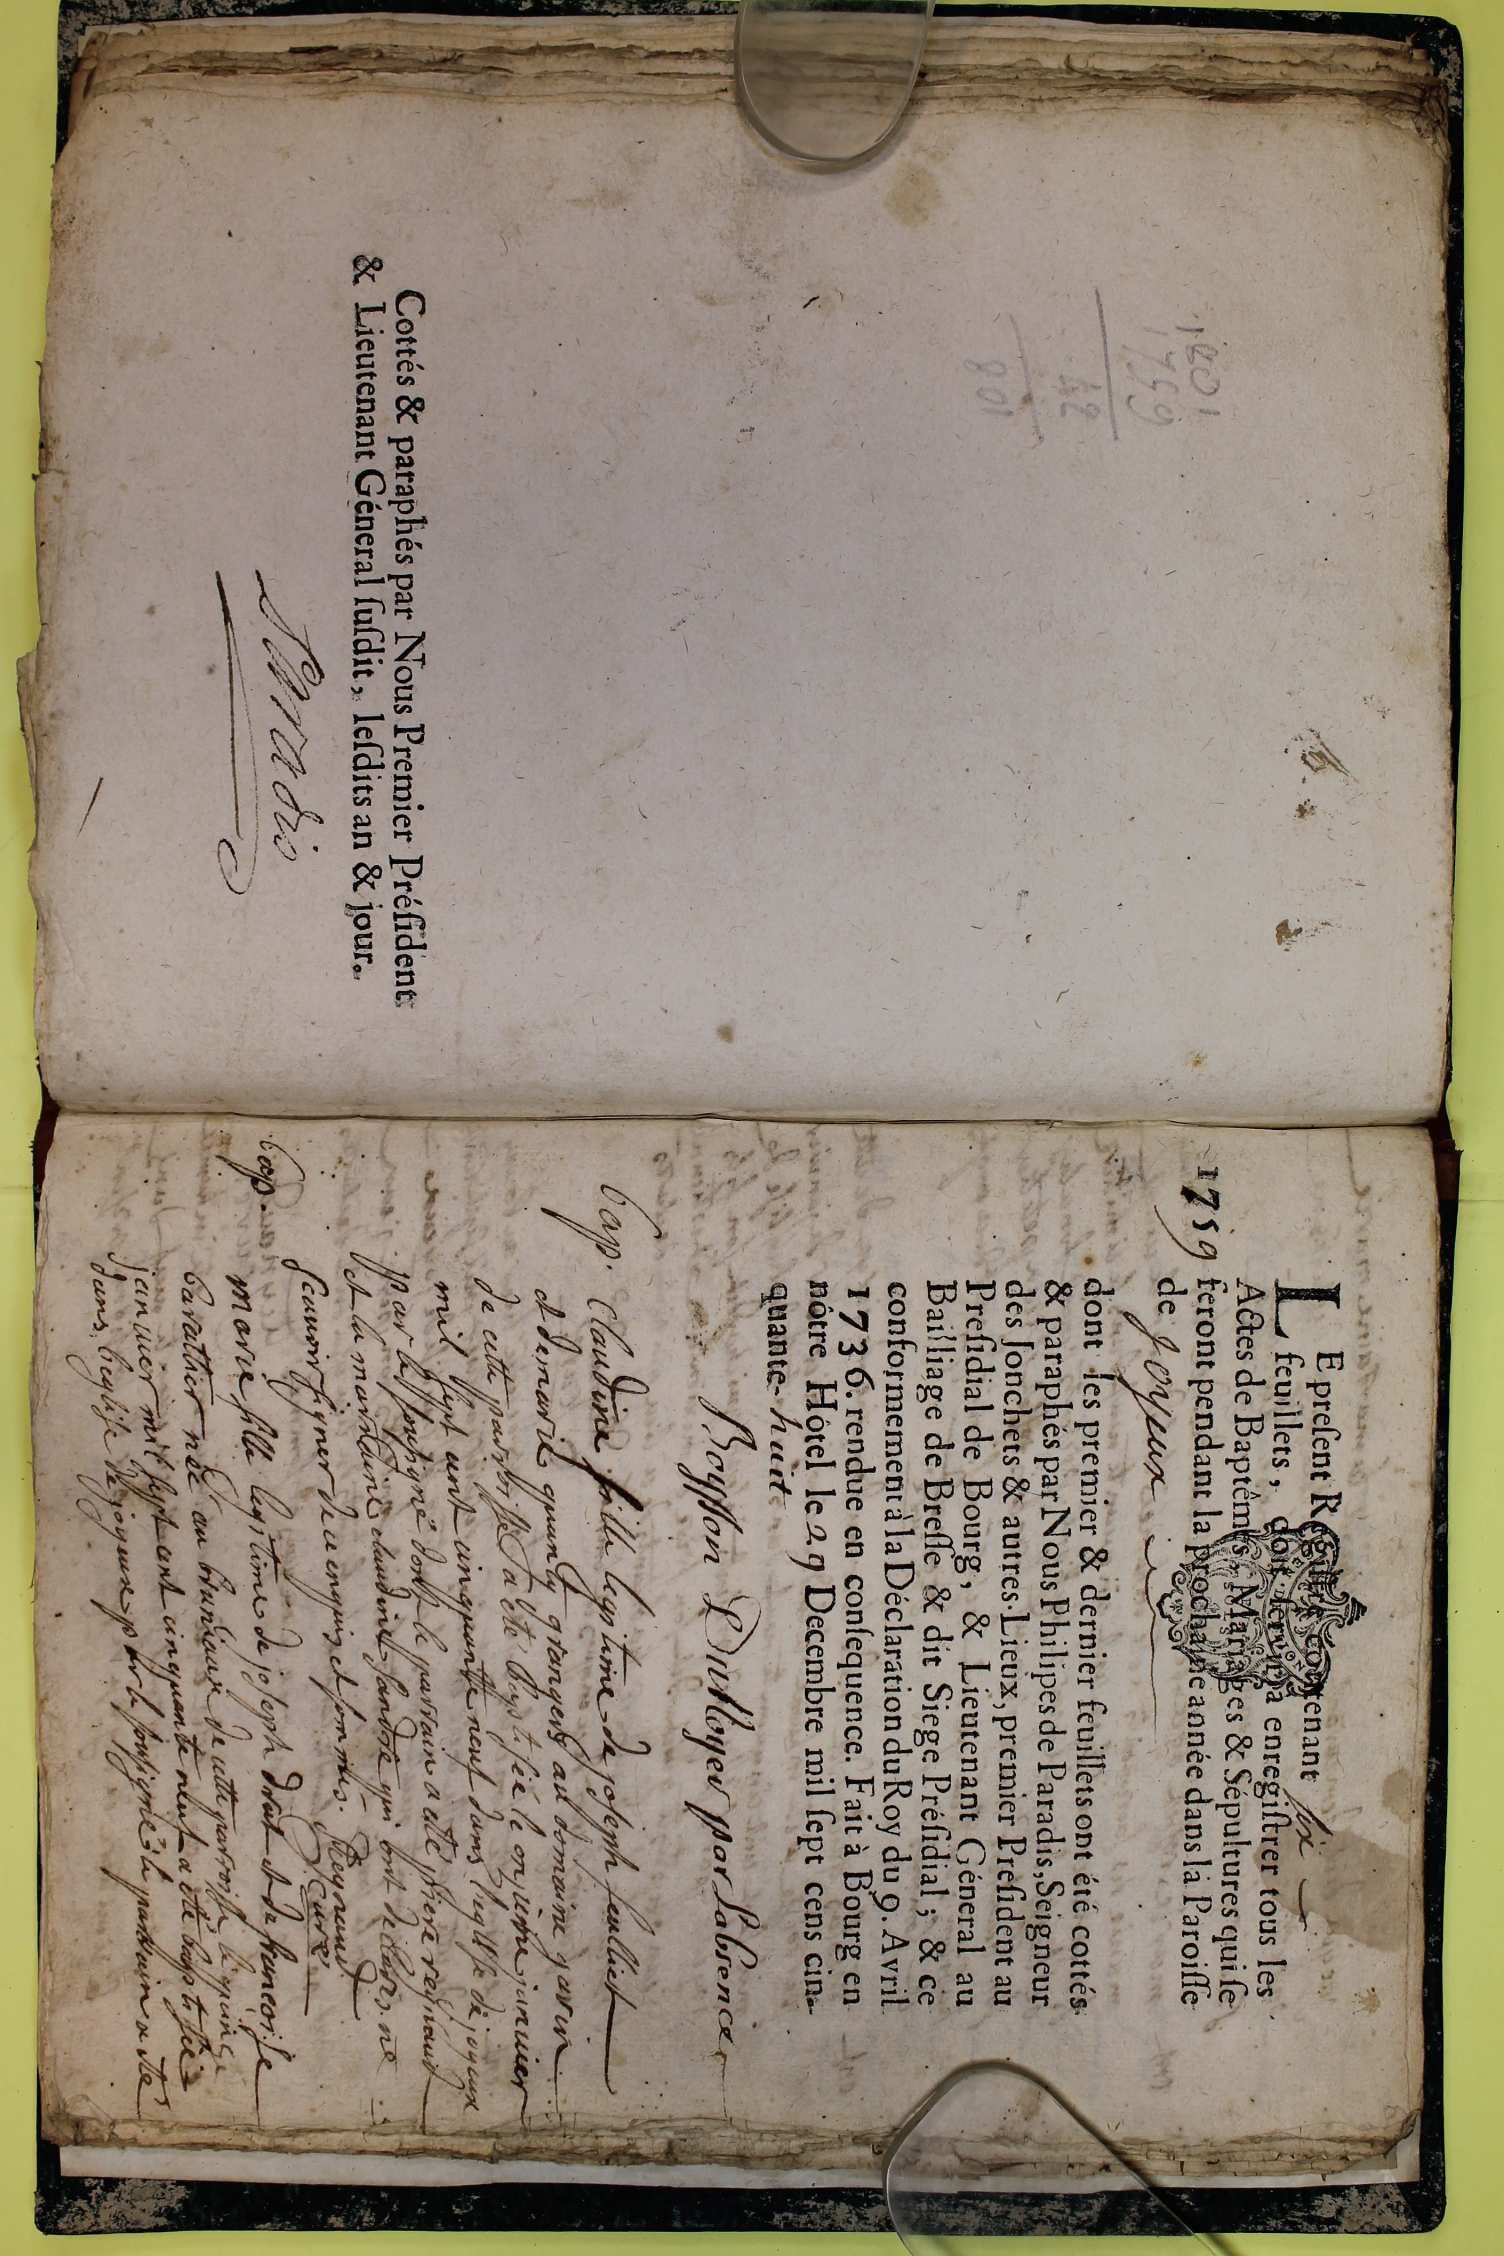 1801
1759
42
108
Cottés & paraphés par Nous Premier Préſident
& Lieutenant Géneral ſuſdit, leſdits an & jour.
1759
LE preſent Regiſtre contenant ſix
feuillets, doit ſervir à enregiſtrer tous les
Actes de Baptêmes, Mariages & Sépultures qui ſe
feront pendant la prochaine année dans la Paroiſſe
de Joyeux
dont les premier & dernier feuillets ont été cottés
& paraphés par Nous Philipes de Paradis, Seigneur
des Jonchets & autres Lieux, premier Preſident au
Preſidial de Bourg, & Lieutenant Géneral au
Bailliage de Breſſe & dit Siege Préſidial; & ce
conformement à la Déclaration du Roy du 9. Avril
1736. rendue en conſequence. Fait à Bourg en
nôtre Hôtel le 29 Decembre mil ſept cens cin-
quante-huit
par Labsence
bap. Claudine fille legitime de joseph feulliet
et de marie grangers au domaine
de cette parroisse a ete baptisée le onzieme janvier
mil sept cent cinquante neuf dans l'eglise de joyeux
par le soussigné dont le parrain a ete pierre reynaud
et la marraine claudine qui ont declarés ne
scavoir signer de ce enquis et sommés. Reynaud
Curé
bap. marie fille legitime de joseph et de francoise
barathier née au de cette parroisse le quinze
janvier mil sept cent cinquante neuf a ete baptisée
dans l'eglise de joyeux par le soussigné le parrain a ete